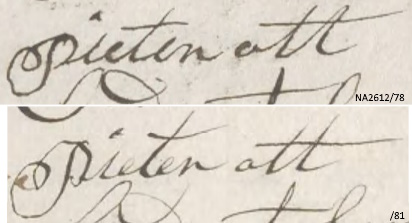 pieten ott
NA2612/78
pieten ott
/81